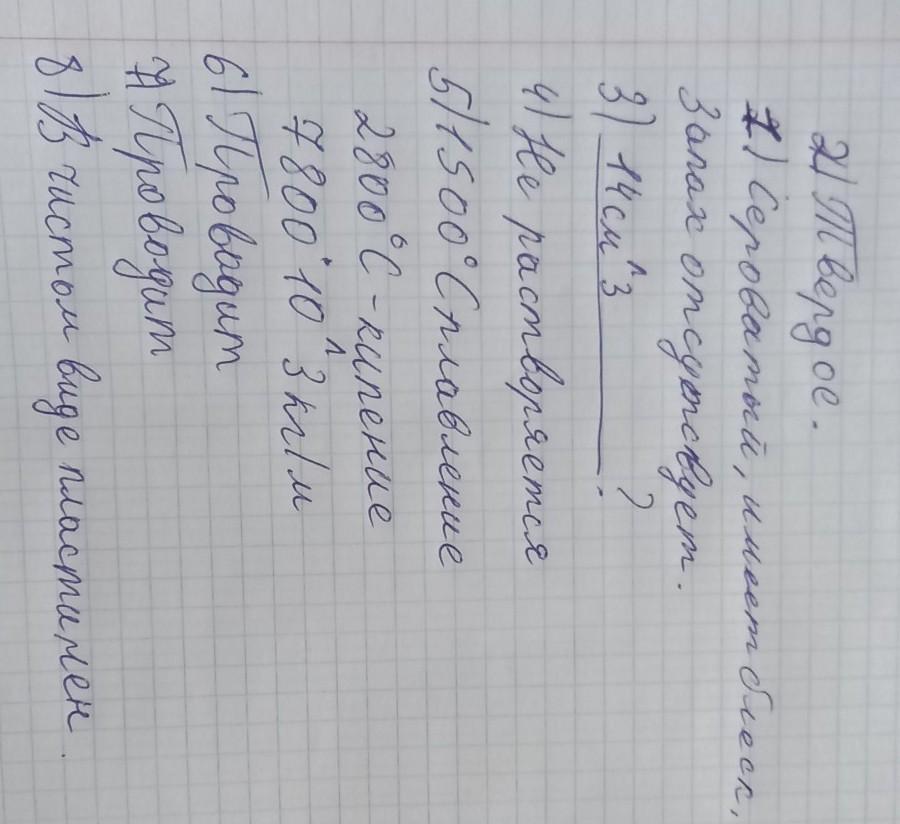 2) Твердое.
1) Сероватый, имеет блеск,
Запах отсутствует.
3) 14 см^3 ?
4) Не растворяется
5) 1500°С плавление
2800°С - кипение
7800*10^3 кг/м
6) Проводит
7) Проводит
8) В чистом виде пластичен.